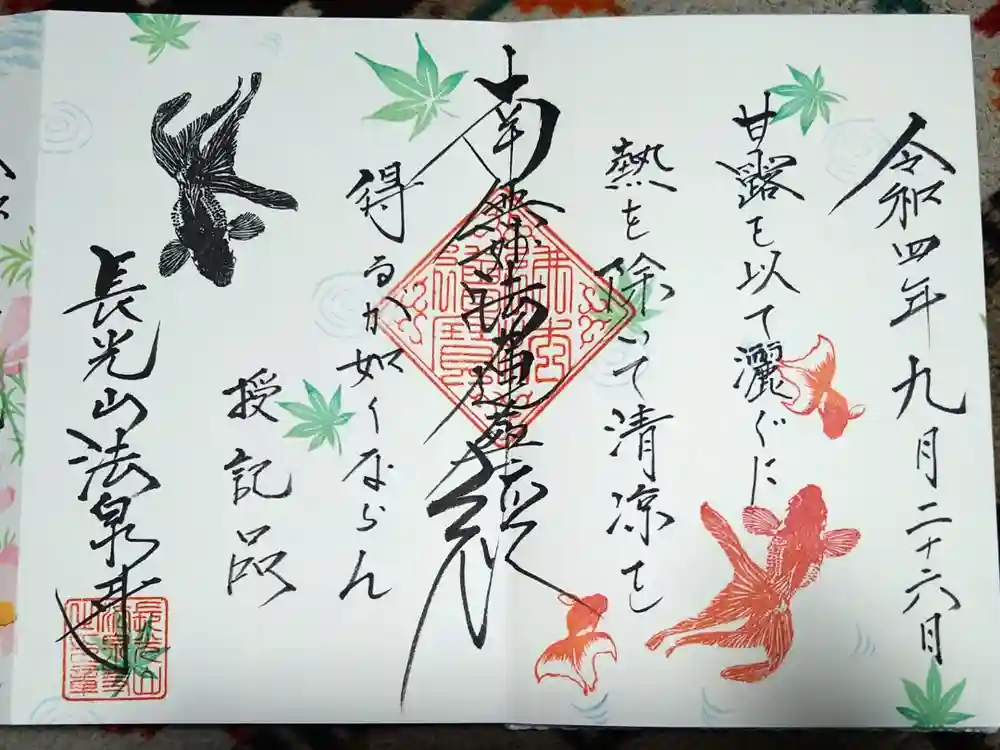 令和四年九月二十六日
甘露を以て灑ぐに
熱を除いて清凉を
南無妙法蓮華経
得るが如くならん
授記品
長光山法泉寺